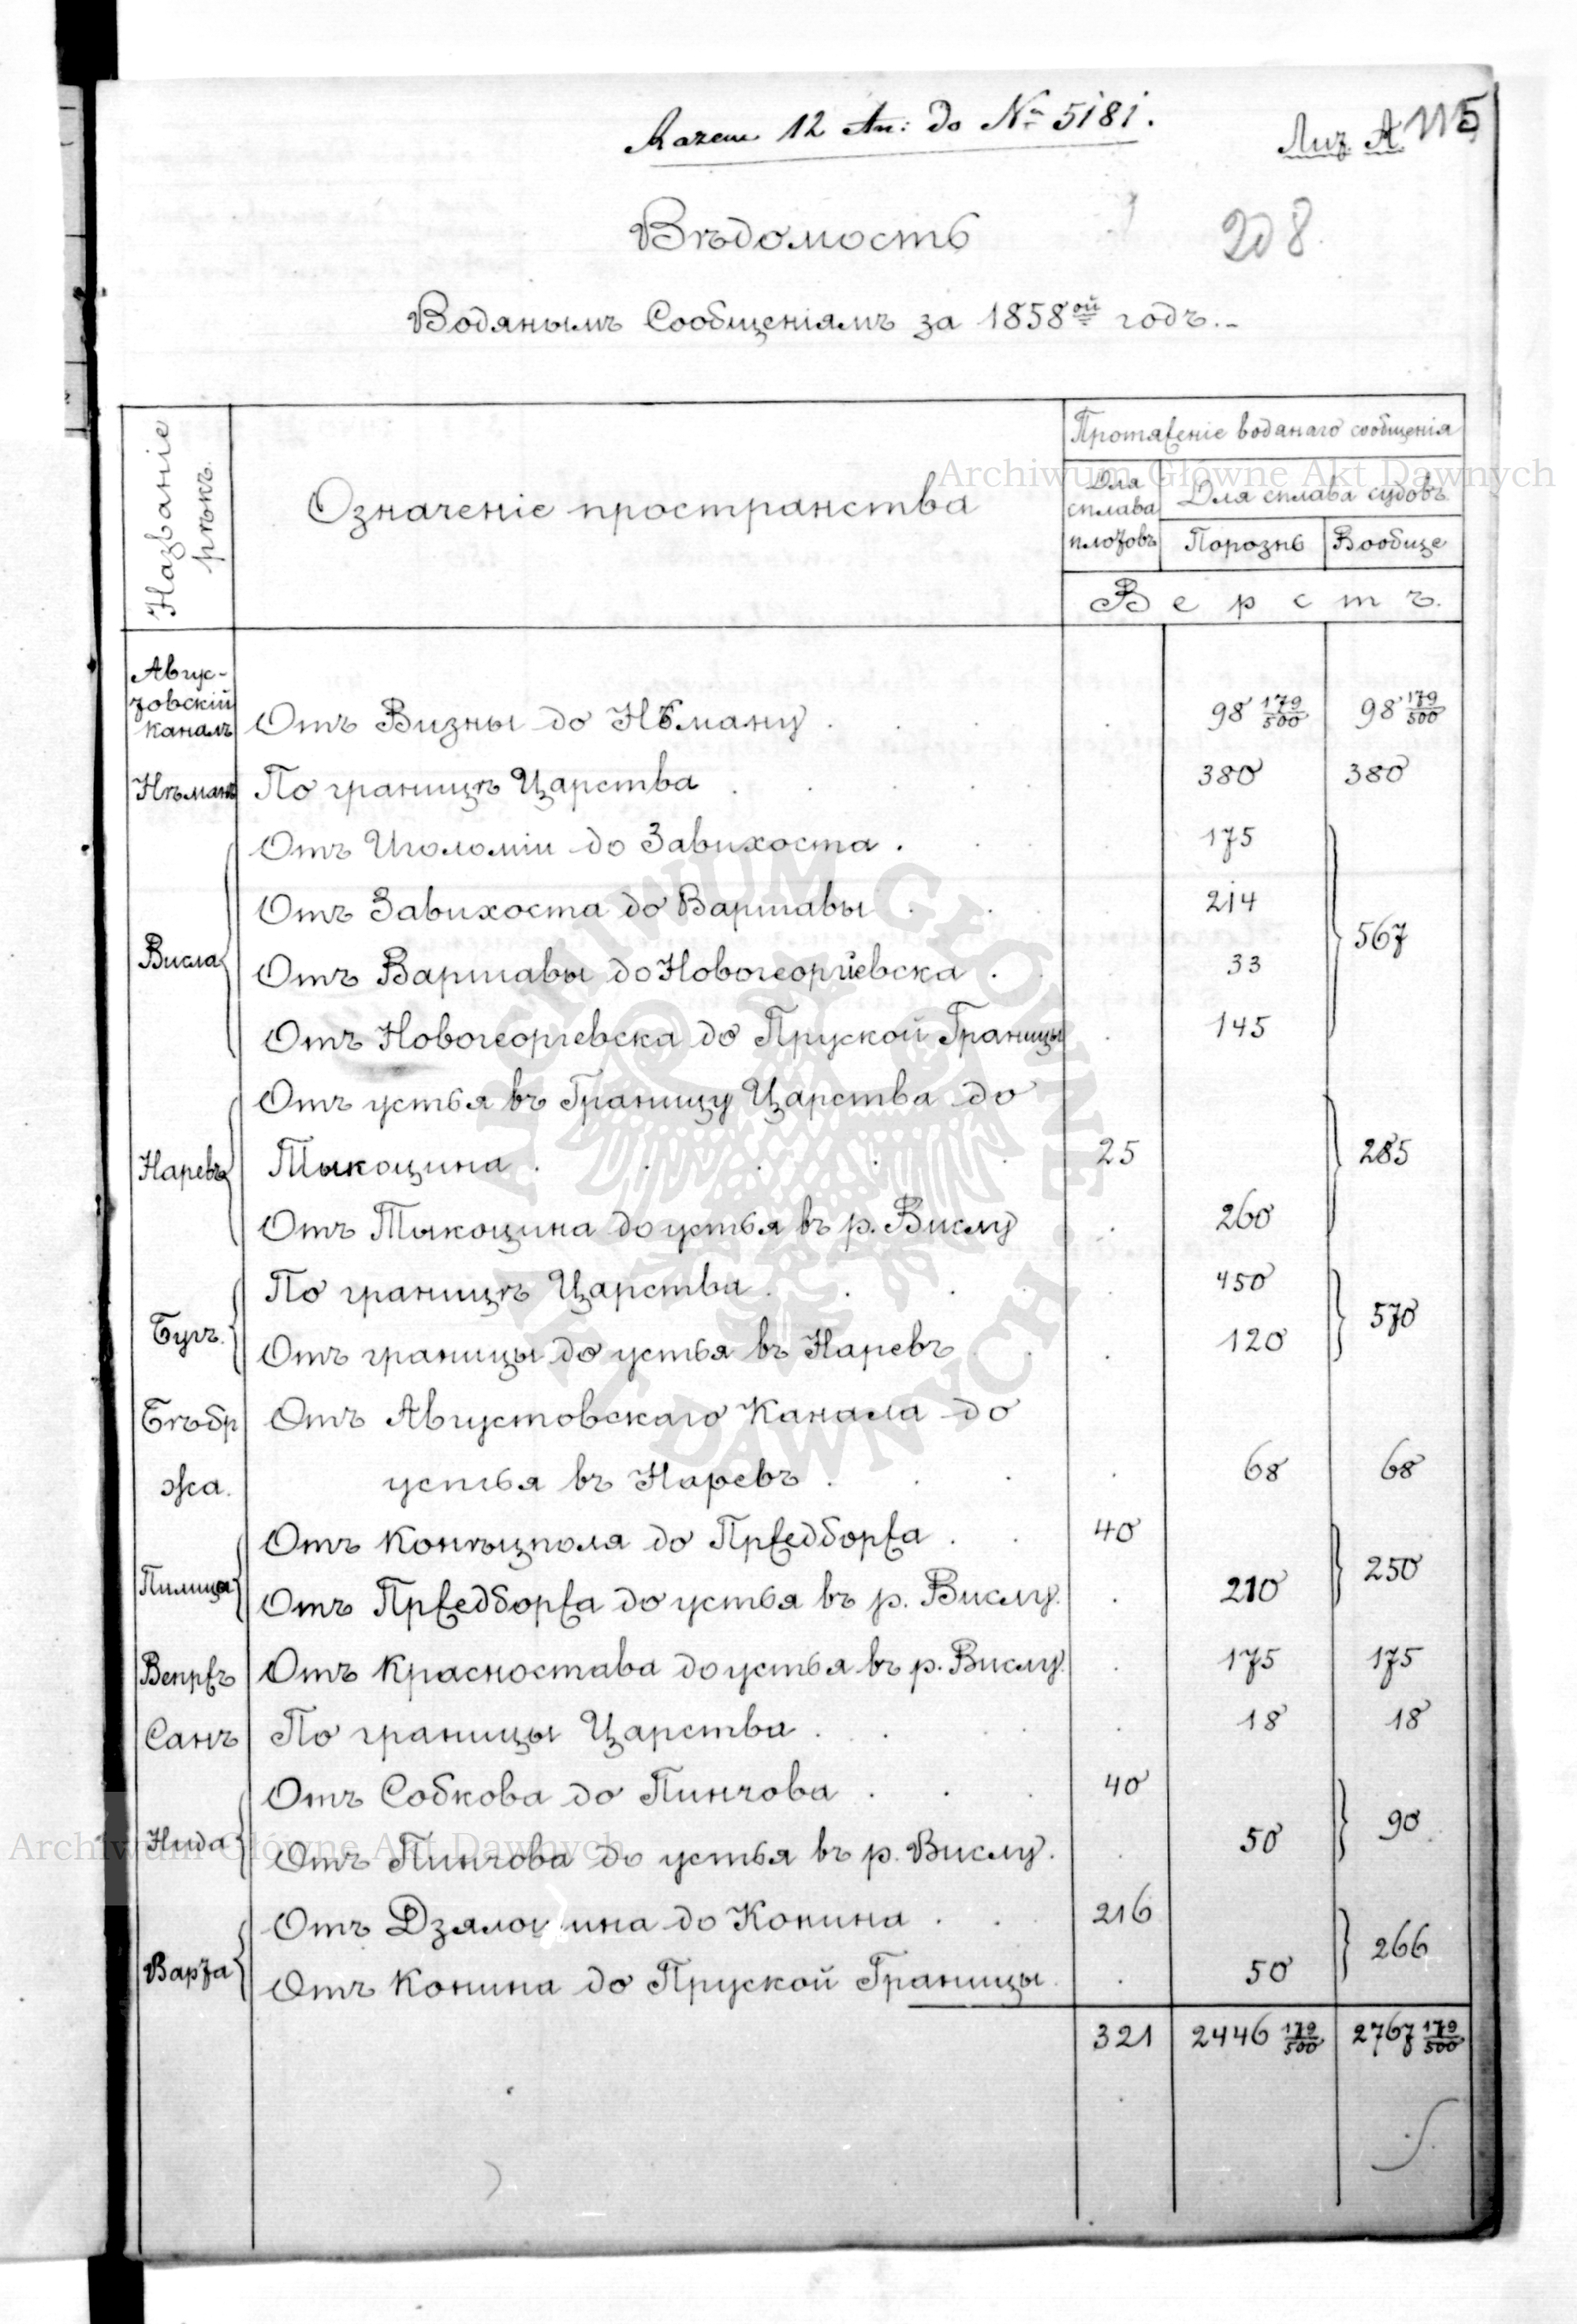 Razem 12 An: do № 5181.
Лит. А. 115
208
Вѣдомость
Водянымъ Сообщеніямъ за 1858ой годъ.-
Названіе рѣкъ.
Означеніе пространства
Протяженіе водянаго сообщенія
Для сплава плотовъ
Для сплава судовъ
Порознь
Вообще
Верстъ.
Авгус-
товскій
каналъ
Отъ Визны до Нѣману . . . . 98 179/500 98 179/500
Нѣманъ По границѣ Царства . . . . 380 380
Отъ Иголоміи до Завихоста . . . 175
Отъ Завихоста до Варшавы . . . 214
Висла 567
Отъ Варшавы до Новогеоргіевска . . 33
Отъ Новогеоргевска до Пруской Границы . 145
Отъ устья въ Границу Царства до
Наревъ Тыкоцина . . . . . 25 285
Отъ Тыкоцина до устья въ р. Вислу . 260
По границѣ Царства . . . . 450
Бугъ. 570
Отъ границы до устья въ Наревъ . . 120
Бѣбр Отъ Августовскаго Канала до
жа. устья въ Наревъ . . . . 68 68
Отъ Конѣцполя до Пржедборжа . . 40
Пилица 250
Отъ Пржедборжа до устья въ р. Вислу. . 210
Вепржъ Отъ Красностава до устья въ р. Вислу. . 175 175
Санъ По границы Царства . . . . 18 18
Отъ Собкова до Пинчова . . . 40
Нида 90
Отъ Пинчова до устья въ р. Вислу. . 50
Отъ Дзялошина до Конина . . 216
Варта 266
Отъ Конина до Пруской Границы . . 50
321 2446 179/500 2767 179/500
Archiwum Główne Akt Dawnych
Archiwum Główne Akt Dawnych
ARCHIWUM GŁÓWNE AKT DAWNYCH